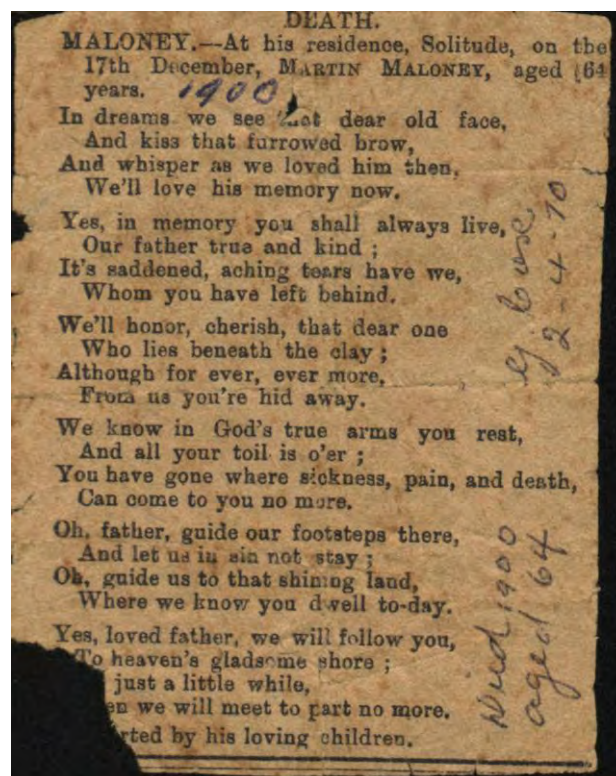 DEATH.
MALONEY.—At his residence, Solitude, on the
17th December, MARTIN MALONEY, aged 64
years. 1900
In dreams we see that dear old face,
And kiss that furrowed brow,
And whisper as we loved him then,
We'll love his memory now.
Yes, in memory you shall always live,
Our father true and kind ;
It's saddened, aching tears have we,
Whom you have left behind.
We'll honor, cherish, that dear one
Who lies beneath the clay ;
Although for ever, ever more,
From us you're hid away.
We know in God's true arms you rest,
And all your toil is o'er ;
You have gone where sickness, pain, and death,
Can come to you no more.
Oh, father, guide our footsteps there,
And let us in sin not stay ;
Oh, guide us to that shining land,
Where we know you dwell to-day.
Yes, loved father, we will follow you,
To heaven's gladsome shore ;
just a little while,
en we will meet to part no more.
rted by his loving children.
2-4-10
Died 1900
aged 64